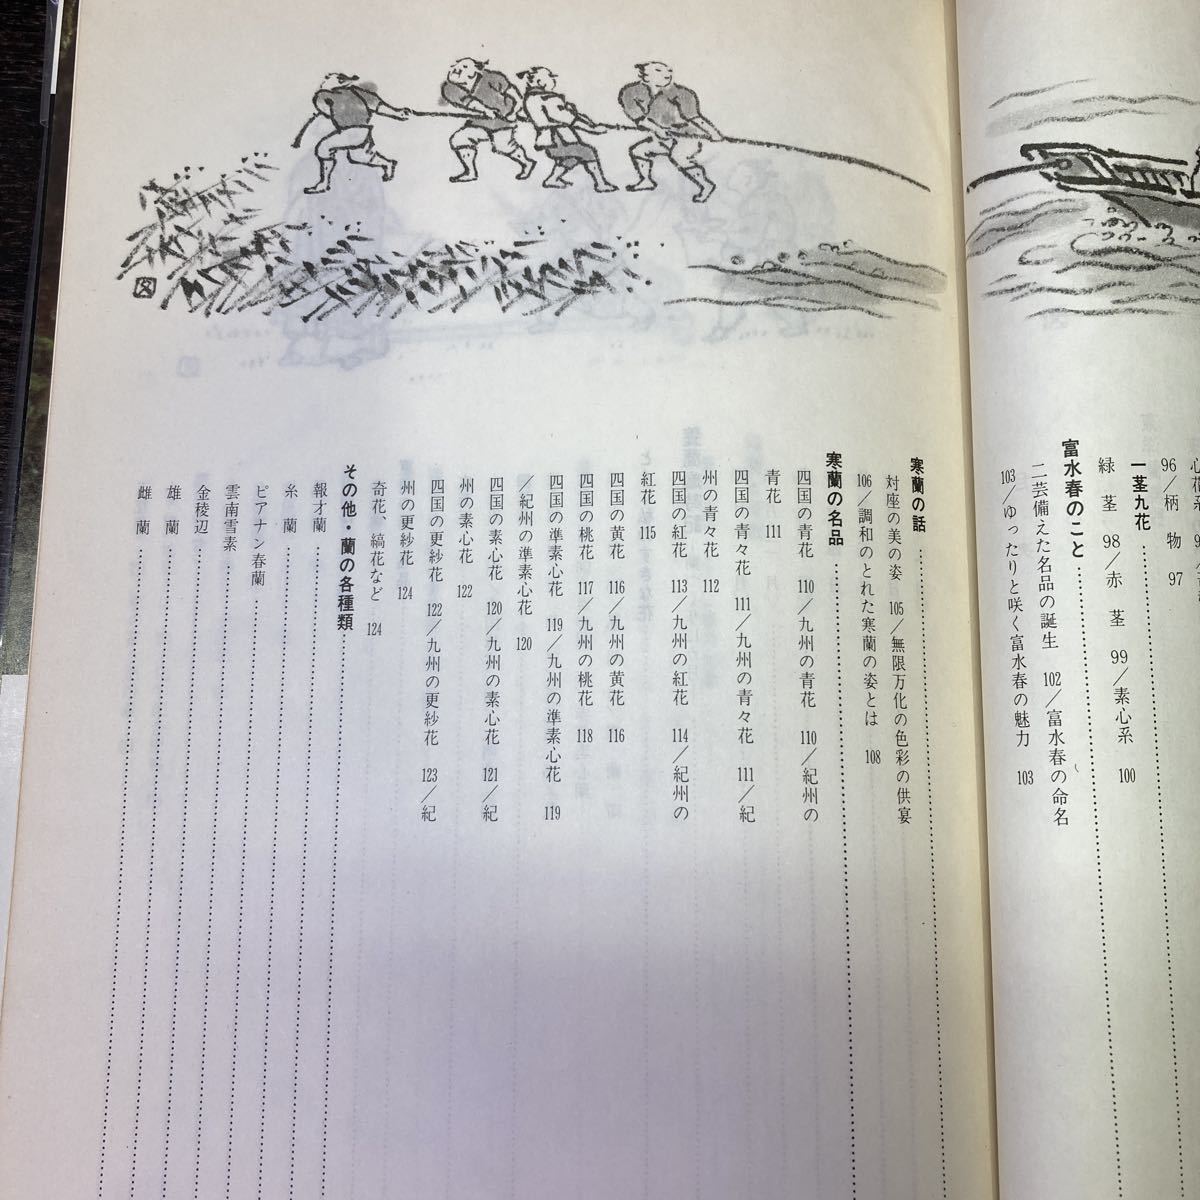 96／柄　物　97
一茎九花
緑　茎　98／赤　茎　99／素心系
100
富水春のこと
二芸備えた名品の誕生　102／富水春の命名
103／ゆったりと咲く富水春の魅力　103
寒蘭の話
対座の美の姿　105／無限万化の色彩の供宴
106／調和のとれた寒蘭の姿とは　108
寒蘭の名品
四国の青花　110／九州の青花　110／紀州の
青花　111
四国の青々花　111／九州の青々花　111／紀
州の青々花　112
四国の紅花　113／九州の紅花　114／紀州の
紅花　115
四国の黄花　116／九州の黄花　116
四国の桃花　117／九州の桃花　118
四国の準素心花　119／九州の準素心花　119
／紀州の準素心花　120
四国の素心花　120／九州の素心花　121／紀
州の素心花　122
四国の更紗花　122／九州の更紗花　123／紀
州の更紗花　124
奇花、縞花など　124
その他・蘭の各種類
報才蘭
糸　蘭
ピアナン春蘭
雲南雪素
金稜辺
雄　蘭
雌　蘭